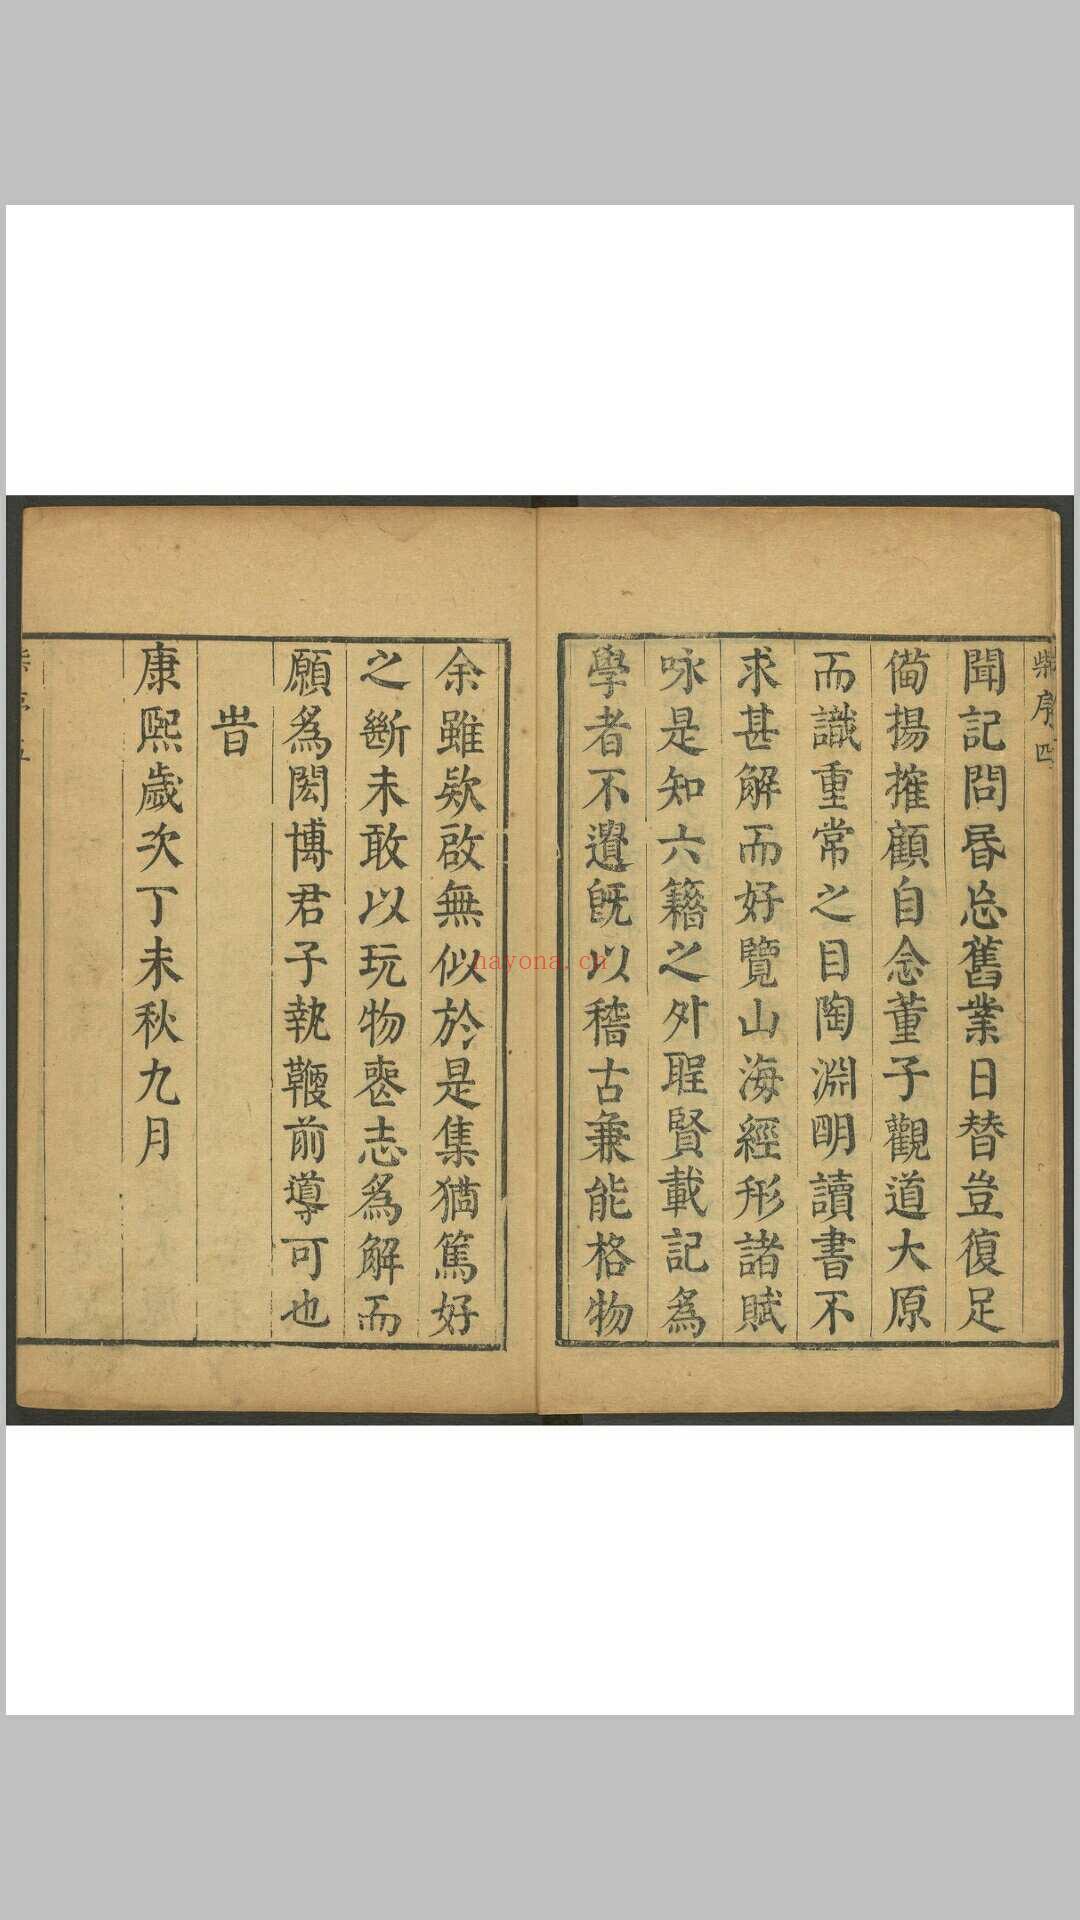 柴序 四
聞記問昬忘舊業日替豈復足
偹揚搉顧自念董子觀道大原
而識重常之目陶淵明讀書不
求甚解而好覽山海經形諸賦
咏是知六籍之外聖賢載記爲
學者不遺旣以稽古兼能格物
余雖欵啟無似於是集猶篤好
之斷未敢以玩物喪志爲解而
願爲閎博君子執鞭前導可也
旹
康熙歲次丁未秋九月
nayona.cn